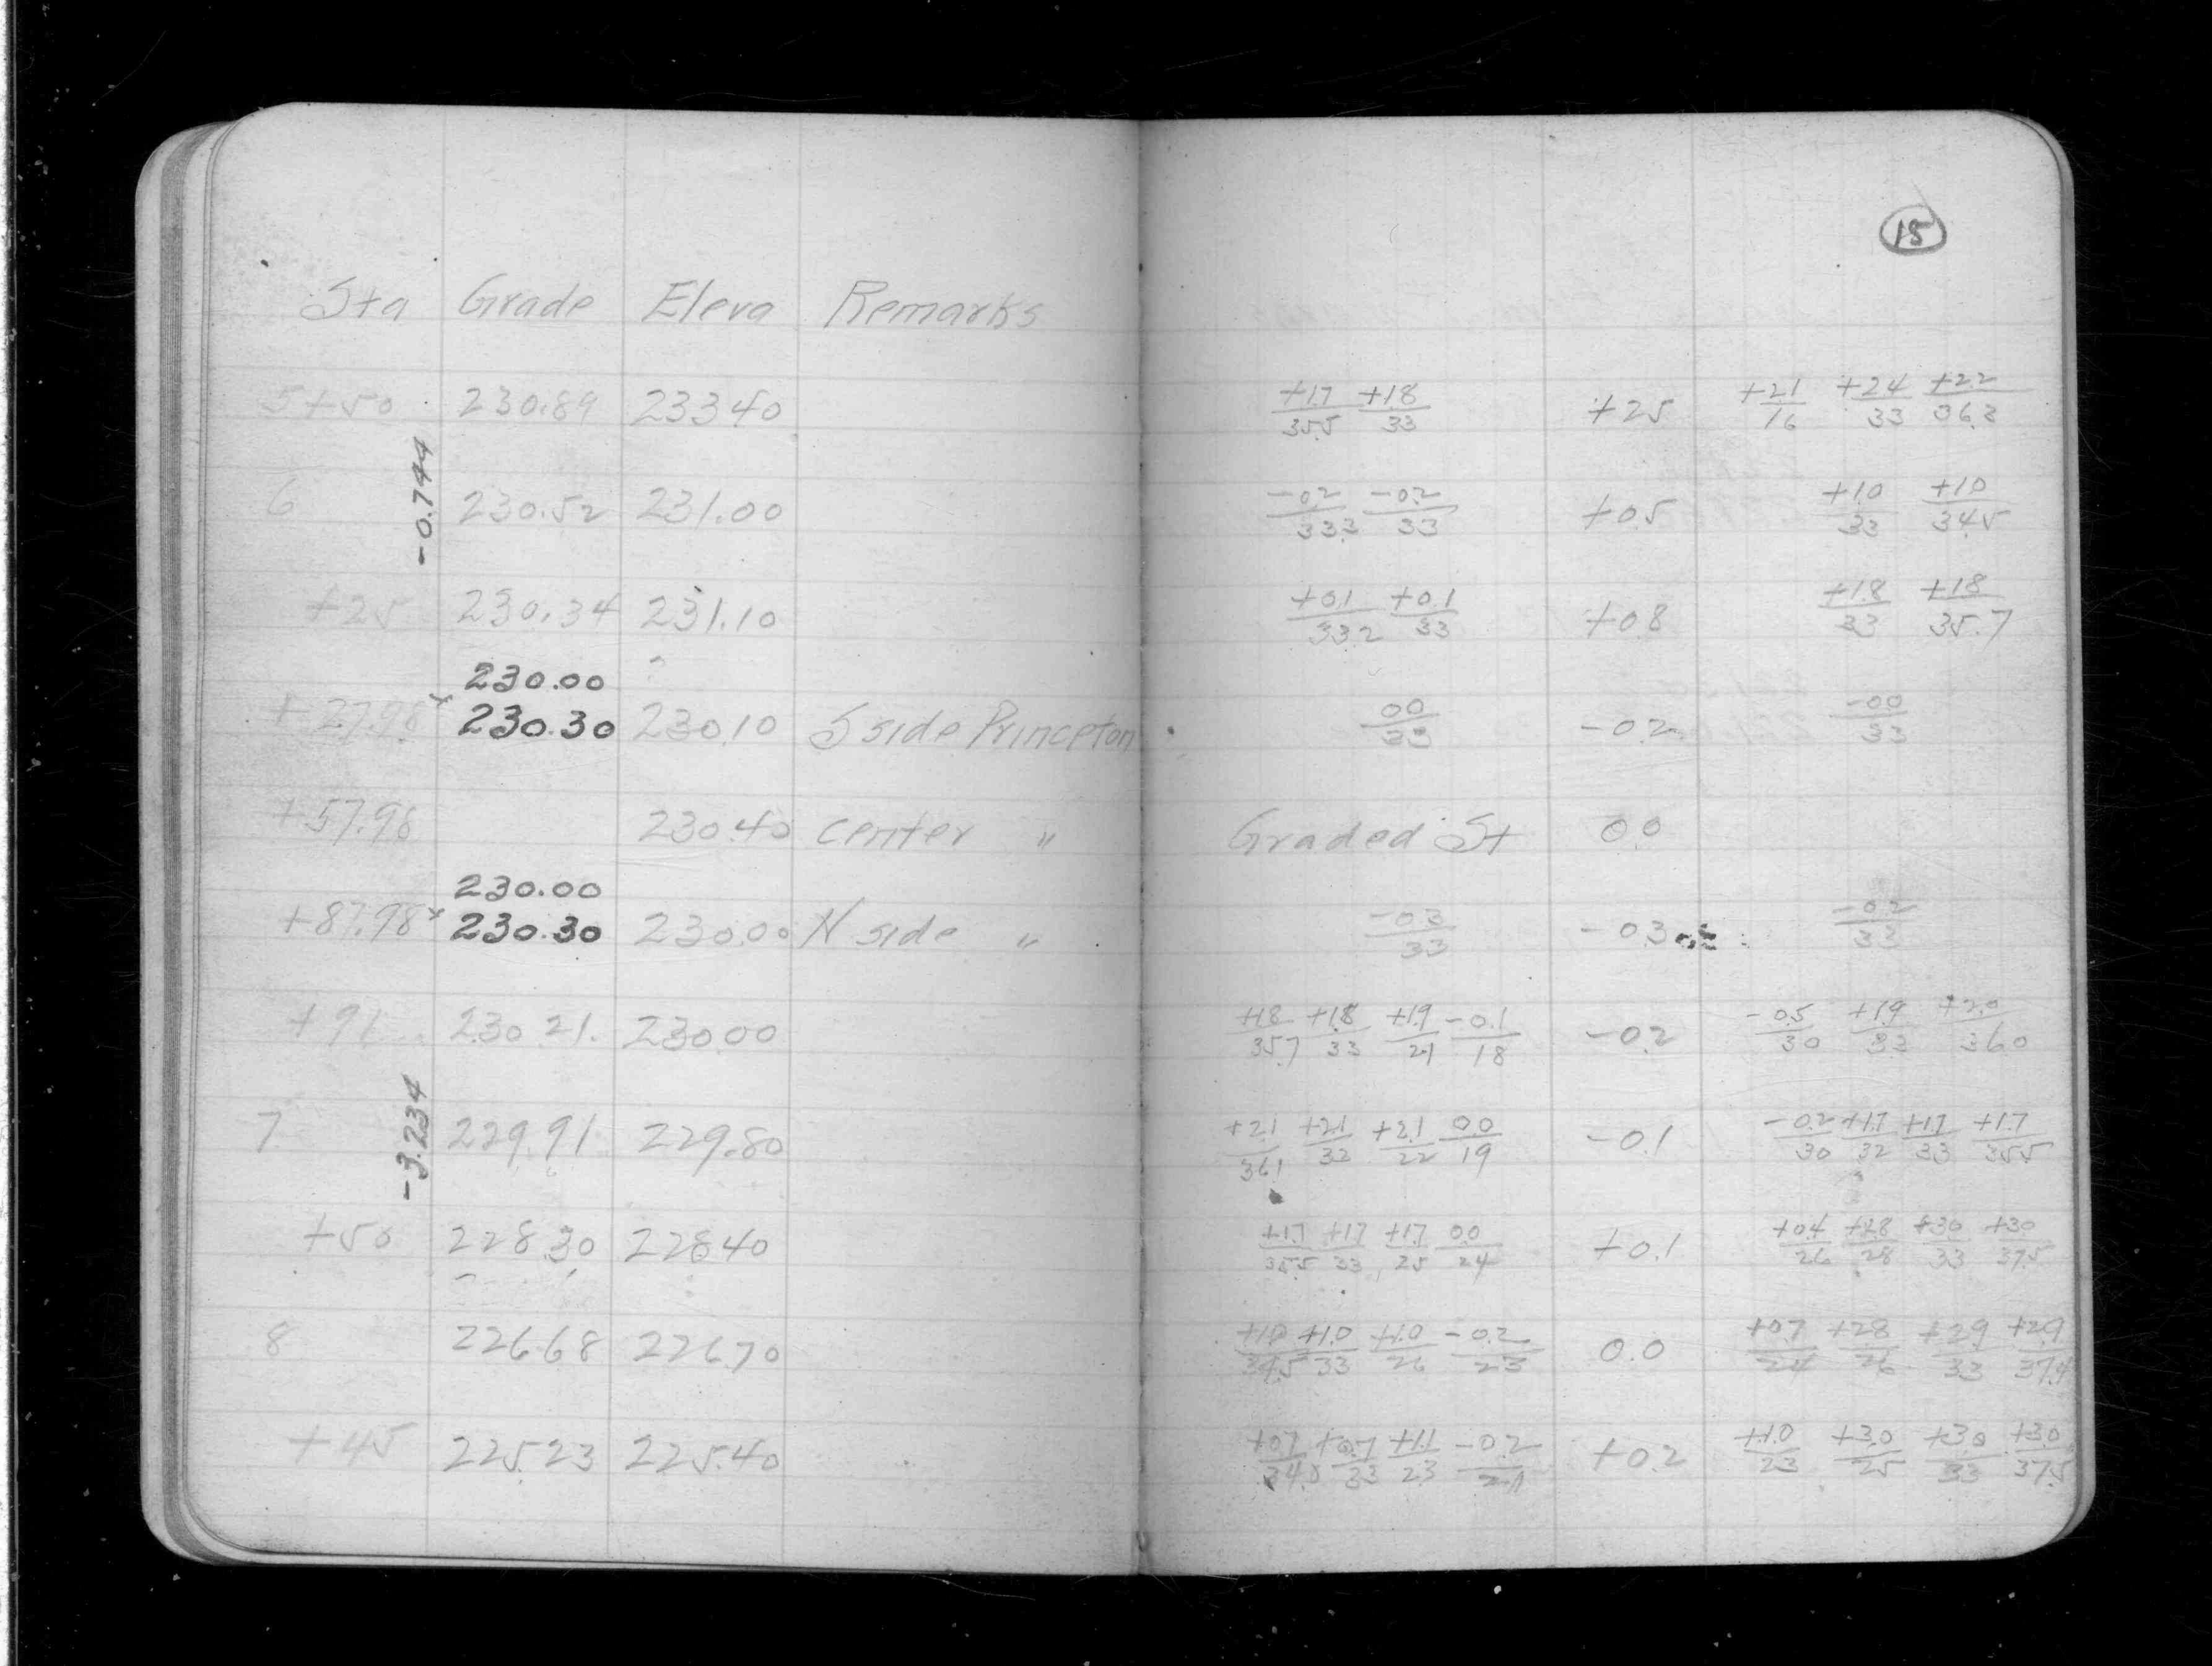 15
Sta Grade Eleva Remarks
5+50 230.89 233.40 +1.7/35.5 +1.8/33 +2.5 +2.1/16 +2.4/33 +2.2/36.3
-0.744
6 230.52 231.00 -0.2/33.3 -0.2/33 +0.5 +1.0/33 +1.0/34.5
+25 230.34 231.10 +0.1/33.2 +0.1/33 +0.8 +1.8/33 +1.8/35.7
230.00
+27.98 x 230.30 230.10 S side Princeton 0.0/33 -0.2 -0.0/33
+57.98 230.40 center " Graded St 0.0
230.00
+87.98 x 230.30 230.00 N side " -0.3/33 -0.3 -0.2/33
+91 230.21 230.00 +1.8/35.7 +1.8/33 +1.9/21 -0.1/18 -0.2 -0.5/30 +1.9/33 +2.0/36.0
-3.234
7 229.91 229.80 +2.1/36.1 +2.1/33 +2.1/22 0.0/19 -0.1 -0.2/30 +1.7/32 +1.7/33 +1.7/35.5
+50 228.30 228.40 +1.7/35.5 +1.7/33 +1.7/25 0.0/24 +0.1 +0.4/26 +2.8/28 +3.0/33 +3.0/37.5
8 226.68 226.70 +1.0/34.5 +1.0/33 +1.0/26 -0.2/23 0.0 +0.7/24 +2.8/26 +2.9/33 +2.9/37.4
+45 225.23 225.40 +0.7/34.0 +0.7/33 +1.1/23 -0.2/21 +0.2 +1.0/23 +3.0/25 +3.0/33 +3.0/37.5